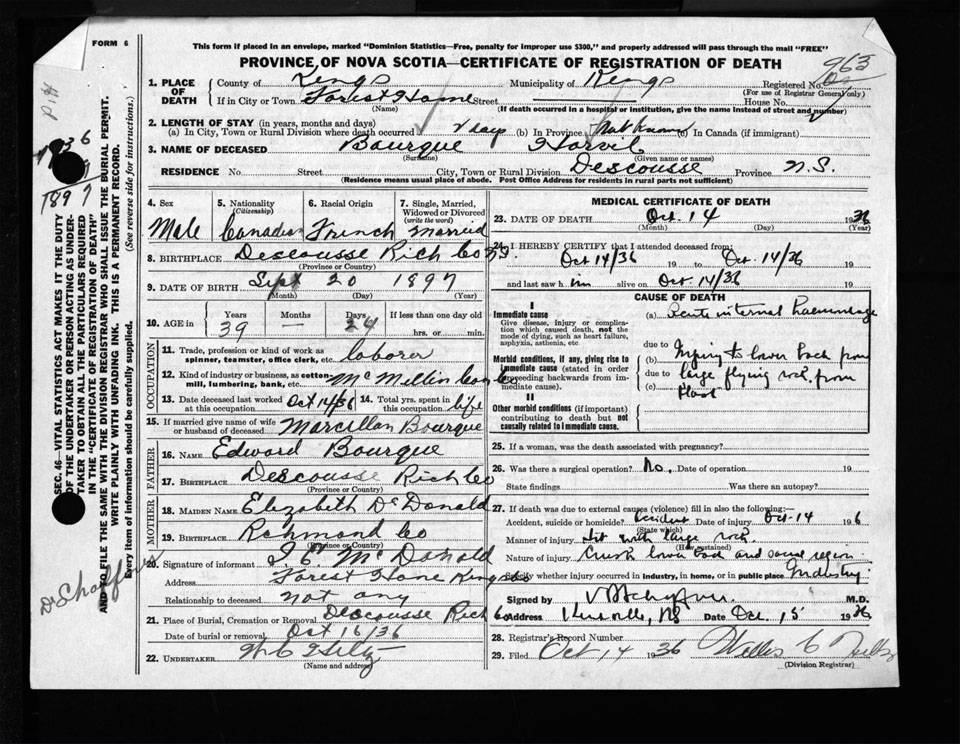 FORM 6
This form if placed in an envelope, marked "Dominion Statistics—Free, penalty for improper use $300," and properly addressed will pass through the mail "FREE"
PROVINCE OF NOVA SCOTIA—CERTIFICATE OF REGISTRATION OF DEATH
963
1. PLACE OF DEATH County of Kings Municipality of Kings Registered No.
(For use of Registrar General only)
If in City or Town Forest Home Street House No.
(Name) (If death occurred in a hospital or institution, give the name instead of street and number)
2. LENGTH OF STAY (in years, months and days)
(a) In City, Town or Rural Division where death occurred days (b) In Province Not known (c) In Canada (if immigrant)
3. NAME OF DECEASED Bourque
(Surname) (Given name or names)
RESIDENCE No. Street City, Town or Rural Division Descousse Province N.S.
(Residence means usual place of abode. Post Office Address for residents in rural parts not sufficient)
4. Sex 5. Nationality (Citizenship) 6. Racial Origin 7. Single, Married, Widowed or Divorced (write the word)
Male Canadian French Married
8. BIRTHPLACE Descousse Rich Co N.S.
(Province or Country)
9. DATE OF BIRTH Sept 20 1897
(Month) (Day) (Year)
10. AGE in Years Months Days If less than one day old
39 — 24 hrs. or min.
OCCUPATION
11. Trade, profession or kind of work as spinner, teamster, office clerk, etc. laborer
12. Kind of industry or business, as cotton-mill, lumbering, bank, etc. McMillin Con Co
13. Date deceased last worked at this occupation Oct 14/36 14. Total yrs. spent in this occupation life
15. If married give name of wife or husband of deceased Marcellan Bourque
FATHER
16. NAME Edward Bourque
17. BIRTHPLACE Descousse Rich Co
(Province or Country)
MOTHER
18. MAIDEN NAME Elizabeth McDonald
19. BIRTHPLACE Richmond Co
(Province or Country)
20. Signature of informant J. E. McDonald
Address Forest Home Kings Co
Relationship to deceased Not any
21. Place of Burial, Cremation or Removal Descousse Rich Co
Date of burial or removal Oct 16/36
22. UNDERTAKER
(Name and address)
MEDICAL CERTIFICATE OF DEATH
23. DATE OF DEATH Oct. 14 1936
(Month) (Day) (Year)
24. I HEREBY CERTIFY that I attended deceased from:
Oct 14/36 19 to Oct. 14/36 19
and last saw him alive on Oct. 14/36 19
CAUSE OF DEATH
I
Immediate cause
Give disease, injury or complication which caused death, not the mode of dying, such as heart failure, asphyxia, asthenia, etc.
(a) Acute internal haemorrhage
due to
Morbid conditions, if any, giving rise to immediate cause (stated in order proceeding backwards from immediate cause).
(b) Injury to lower back from
due to large flying rock from
(c) blast
II
Other morbid conditions (if important) contributing to death but not causally related to immediate cause.
25. If a woman, was the death associated with pregnancy?
26. Was there a surgical operation? No., Date of operation 19
State findings Was there an autopsy?
27. If death was due to external causes (violence) fill in also the following:—
Accident, suicide or homicide? Accident Date of injury Oct-14 1936
(State which)
Manner of injury Hit with large rock
(How sustained)
Nature of injury Crush lower back and sacral region
Specify whether injury occurred in industry, in home, or in public place Industry
Signed by M.D.
Address Kentville, NS Date Oct. 15 1936
28. Registrar's Record Number
29. Filed Oct 14 1936
(Division Registrar)
SEC. 46—VITAL STATISTICS ACT MAKES IT THE DUTY OF THE UNDERTAKER OR PERSON ACTING AS UNDERTAKER TO OBTAIN ALL THE PARTICULARS REQUIRED IN THE "CERTIFICATE OF REGISTRATION OF DEATH" AND TO FILE THE SAME WITH THE DIVISION REGISTRAR WHO SHALL ISSUE THE BURIAL PERMIT.
WRITE PLAINLY WITH UNFADING INK. THIS IS A PERMANENT RECORD.
Every item of information should be carefully supplied. (See reverse side for instructions.)
1936
1897